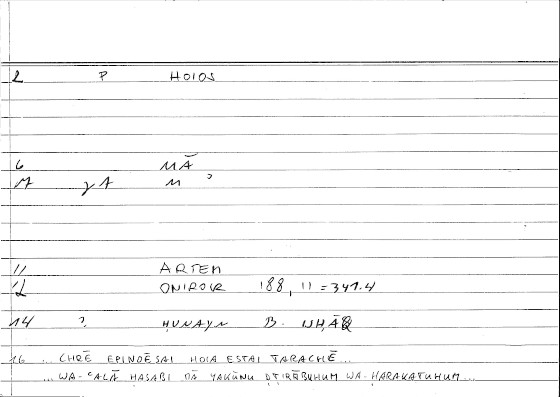 2 P HOIOS
6 MĀ
11 ARTEM
12 ONIROKR 188, 11 = 341.4
14 ḤUNAYN B. ISḤĀQ
16 ... CHRĒ EPINOĒSAI HOIA ESTAI TARACHĒ ...
... WA-ʿALĀ ḤASABI ḎĀ YAKŪNU ḌṬIRĀBUHUM WA-ḤARAKATUHUM ...